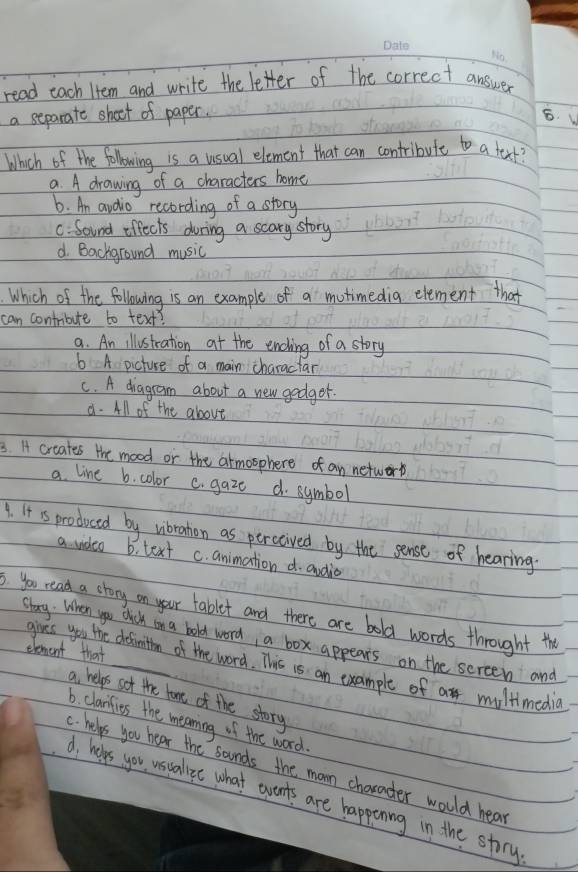 Date
No.
read each Item and write the letter of the correct answer
a separate sheet of paper.
Which of the following is a visual element that can contribute to a text?
a. A drawing of a characters home
b. An audio recording of a story
c. Sound effects during a scary story
d. Background music
. Which of the following is an example of a mutimedia element that
can contribute to text?
a. An illustration at the ending of a story
b A picture of a main charactar
c. A diagram about a new gadget.
d. All of the above
3. It creates the mood or the atmosphere of an network
a. line b. color c. gaze d. symbol
4. It is produced by vibration as perceived by the sense of hearing.
a. video b. text c. animation d. audio
5. you read a story on your tablet and there are bold words throught the
story. When you click on a bold word, a box appears on the screen and
gives you the definition of the word. This is an example of a multimedia
element that
a. helps set the tone of the story
b. clarifies the meaning of the word.
c. helps you hear the sounds the main charader would hear
d. helps you visualize what events are happening in the story.
6. W